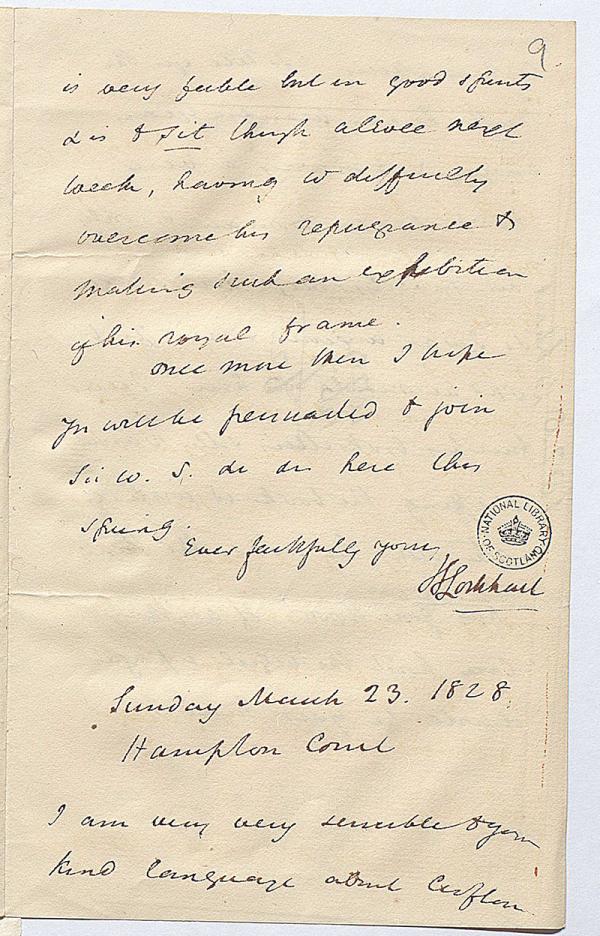 9
is very feeble but in good spirits
& is to sit through a levee next
week, having w difficulty
overcome his repugnance to
making such an exhibition
of his royal frame.
once more then I hope
you will be persuaded to join
Sir W. S. &c &c here this
spring.
Ever faithfully yours,
JGLockhart
NATIONAL LIBRARY OF SCOTLAND
Sunday March 23. 1828
Hampton Court
I am very very sensible to your
kind language about